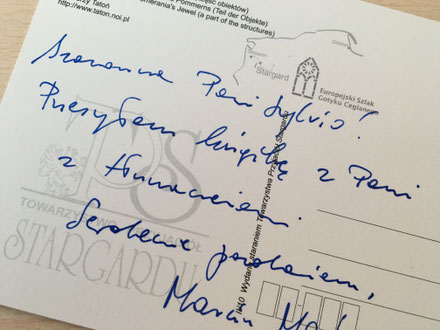 zy Tatoń
http://www.taton.noi.pl
ęść obiektów)
Pommerns (Teil der Objekte)
merania's Jewel (a part of the structures)
Stargard
Europejski Szlak
Gotyku Ceglanego
Szanowna Pani Sylvio!
Przesyłam książkę z Pani
z tłumaczeniem.
Serdecznie pozdrawiam,
Marcin
TPS
TOWARZYSTWO
STARGARDU
Wydano staraniem Towarzystwa Przyjaciół Stargardu